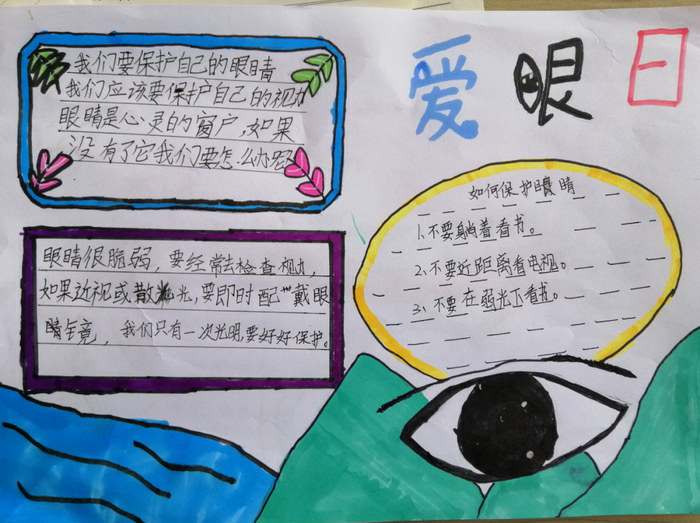 爱眼日
我们要保护自己的眼睛
我们应该要保护自己的视力
眼睛是心灵的窗户,如果
没有了它我们要怎么办呢
如何保护眼睛
1.不要躺着看书。
2.不要近距离看电视。
3.不要在弱光下看书。
眼睛很脆弱,要经常去检查视力,
如果近视或散光,要即时配戴眼
睛竟,我们只有一次光明,要好好保护。